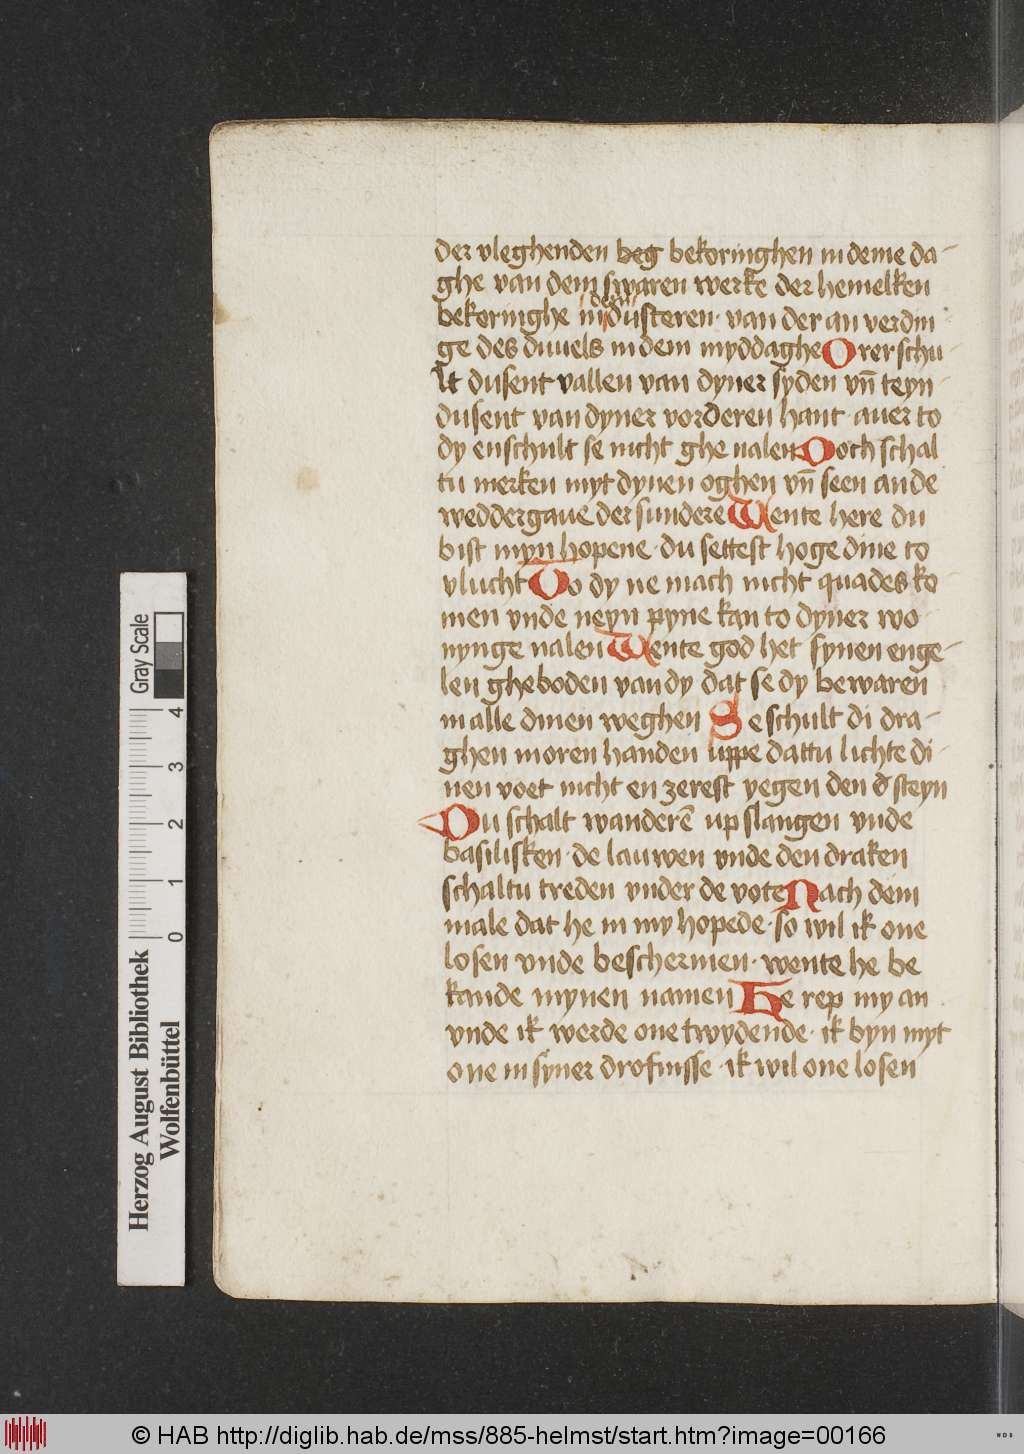 der vleghenden beg bekoringhen in deme da-
ghe van dem swaren werke der hemelken
bekoringhe in den dusteren · van der an verdin
ge des duuels in dem myddaghe Orer schu-
lt dusent vallen van dyner syden vn̄ teyn-
dusent van dyner vorderen hant · auer to
dy en schult se nicht ghe nalen Doch schal
tu merken myt dynen oghen vn̄ seen an de
weddergaue der sundere Wente here du
bist myn hopene · du settest hoge dine to
vlucht To dy ne mach nicht quades ko
men vnde neyn pyne kan to dyner wo
nynge nalen Wente god het synen enge-
len gheboden van dy dat se dy bewaren
in alle dinen weghen Se schult di dra-
ghen in oren handen uppe dattu lichte di-
nen voet nicht en zerest yegen den steyn
Du schalt wanderē up slangen vnde
basilisken · de lauwen vnde den draken
schaltu treden vnder de vote Nach dem
male dat he in my hopede · so wil ik one
losen vnde beschermen · wente he be
kande mynen namen He rep my an
vnde ik werde one twydende · ik byn myt
one in syner drofnisse · ik wil one losen
Herzog August Bibliothek
Wolfenbüttel
Gray Scale
0 1 2 3 4
© HAB http://diglib.hab.de/mss/885-helmst/start.htm?image=00166
WDB